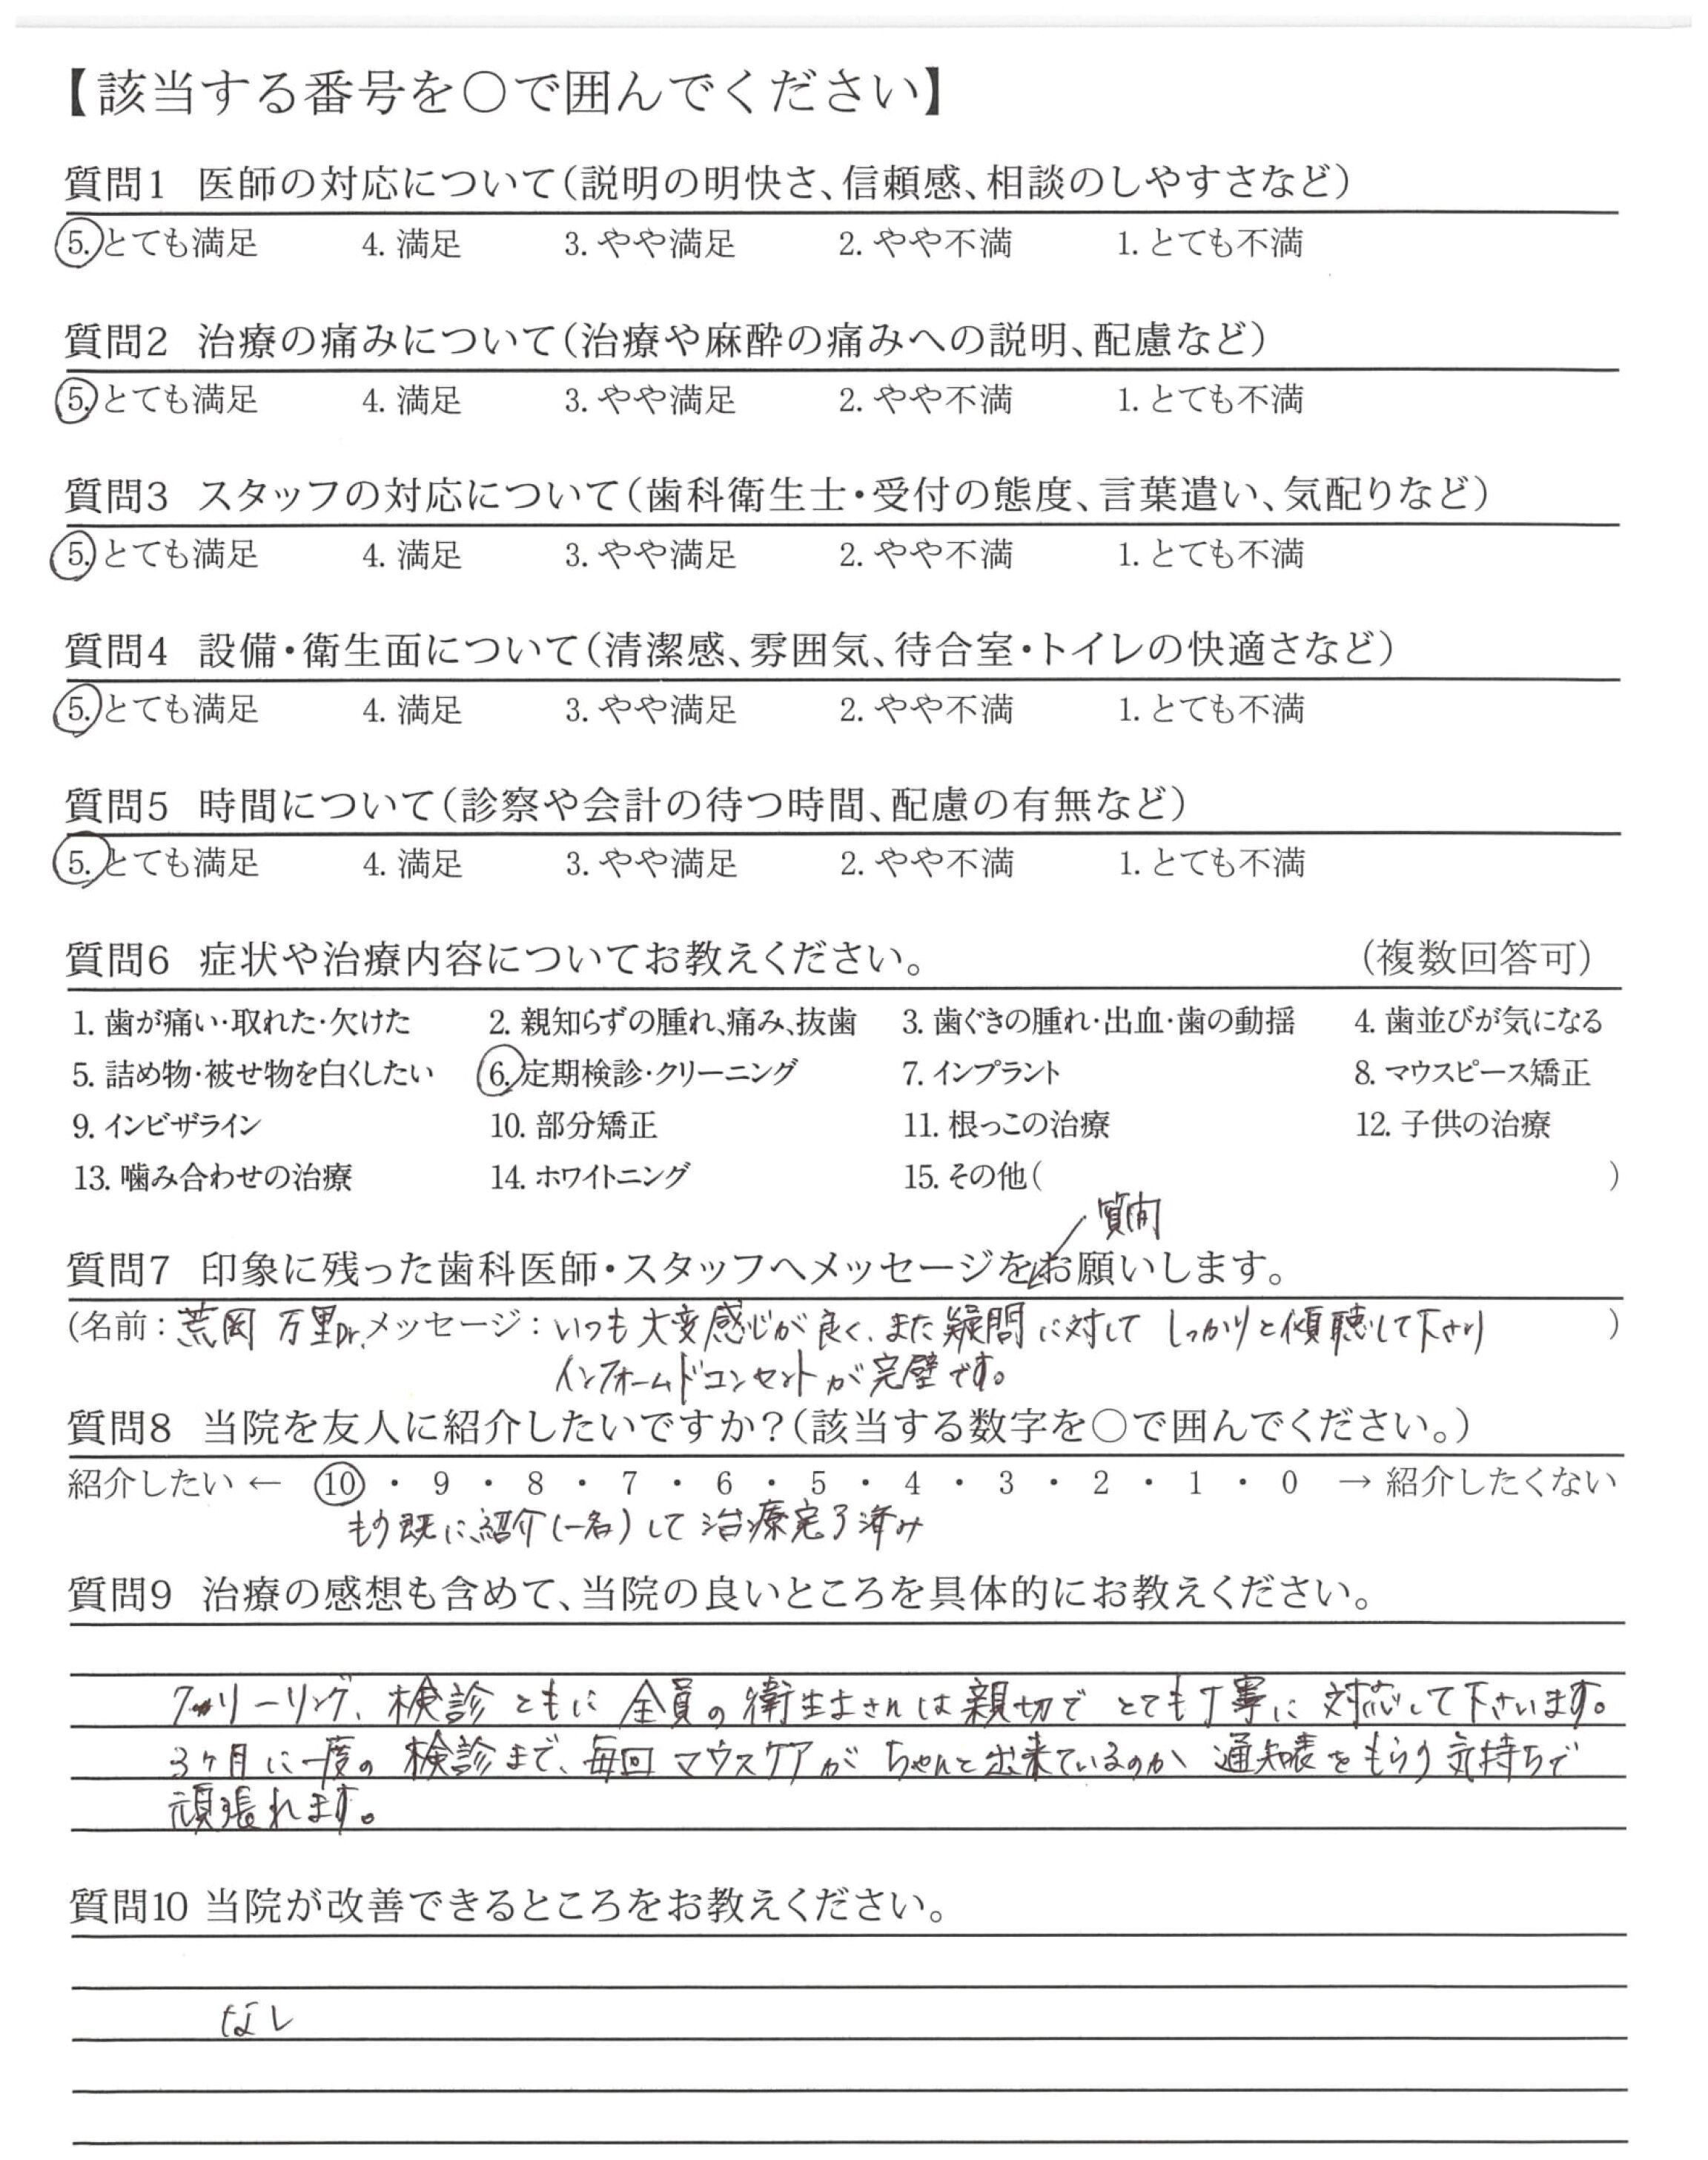 【該当する番号を○で囲んでください】
質問1 医師の対応について(説明の明快さ、信頼感、相談のしやすさなど)
5. とても満足 4. 満足 3. やや満足 2. やや不満 1. とても不満
質問2 治療の痛みについて(治療や麻酔の痛みへの説明、配慮など)
5. とても満足 4. 満足 3. やや満足 2. やや不満 1. とても不満
質問3 スタッフの対応について(歯科衛生士・受付の態度、言葉遣い、気配りなど)
5. とても満足 4. 満足 3. やや満足 2. やや不満 1. とても不満
質問4 設備・衛生面について(清潔感、雰囲気、待合室・トイレの快適さなど)
5. とても満足 4. 満足 3. やや満足 2. やや不満 1. とても不満
質問5 時間について(診察や会計の待つ時間、配慮の有無など)
5. とても満足 4. 満足 3. やや満足 2. やや不満 1. とても不満
質問6 症状や治療内容についてお教えください。 (複数回答可)
1. 歯が痛い・取れた・欠けた 2. 親知らずの腫れ、痛み、抜歯 3. 歯ぐきの腫れ・出血・歯の動揺 4. 歯並びが気になる
5. 詰め物・被せ物を白くしたい 6. 定期検診・クリーニング 7. インプラント 8. マウスピース矯正
9. インビザライン 10. 部分矯正 11. 根っこの治療 12. 子供の治療
13. 噛み合わせの治療 14. ホワイトニング 15. その他( )
質問
質問7 印象に残った歯科医師・スタッフへメッセージをお願いします。
(名前:荒岡 万里Dr. メッセージ:いつも大変感じが良く、また疑問に対してしっかりと傾聴して下さり )
インフォームドコンセントが完璧です。
質問8 当院を友人に紹介したいですか?(該当する数字を○で囲んでください。)
紹介したい ← 10 ・ 9 ・ 8 ・ 7 ・ 6 ・ 5 ・ 4 ・ 3 ・ 2 ・ 1 ・ 0 → 紹介したくない
もう既に紹介(一名)して治療完了済み
質問9 治療の感想も含めて、当院の良いところを具体的にお教えください。
クリーリング、検診ともに全員の衛生士さんは親切でとても丁寧に対応して下さいます。
3ヶ月に一度の検診まで、毎回マウスケアがちゃんと出来ているのか通知表をもらう気持ちで
頑張れます。
質問10 当院が改善できるところをお教えください。
なし